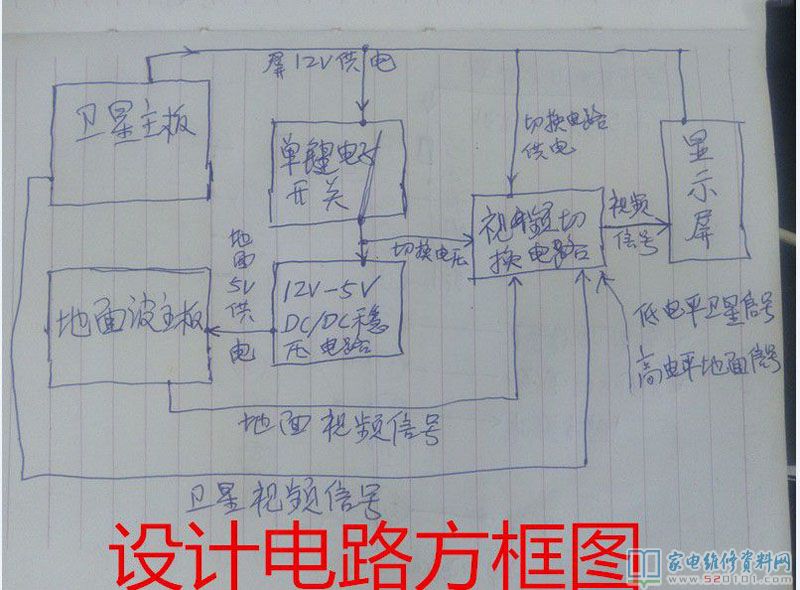 屏12V供电
卫星主板
单键电子
开关
切换电路
供电
显
示
屏
视频切
换电路
视频
信号
切换电压
地
面
5V
供
电
地面波主板
12V-5V
DC/DC稳
压电路
低电平卫星信号
高电平地面信号
地面视频信号
卫星视频信号
设计电路方框图
家电维修资料网
www.520101.com